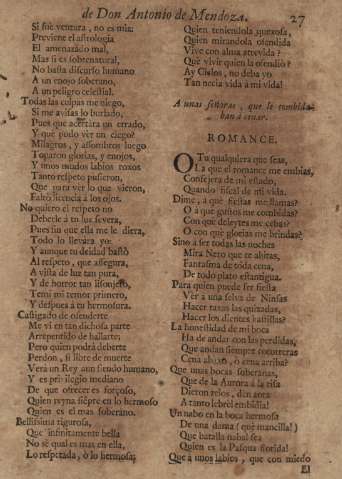 de Don Antonio de Mendoza. 27
Si fuè ventura, no es mia:
Previene el astrologia
El amenazado mal,
Mas si es sobrenatural,
No basta discurso humano
A un enojo soberano,
A un peligro celestial.
Todas las culpas me niego,
Si me avisas lo burlado,
Pues que acertàra un errado,
Y què pudo ver un ciego?
Milagros, y assombros luego
Toparon glorias, y enojos,
Y unos mudos labios roxos
Tanto respeto pusieron,
Que para ver lo que vieron,
Faltò licencia à los ojos.
No quiero el respeto no
Deberle à tu luz severa,
Pues sin que ella me le diera,
Todo lo llevara yo:
Y aunque tu deidad bastò
Al respeto, que assegura,
A vista de luz tan pura,
Y de horror tan lisonjero,
Temì mi temor primero,
Y despues à tu hermosura.
Castigado de ofenderte
Me vì en tan dichosa parte
Arrepentido de hallarte;
Pero quien podrà deberte
Perdon, si libre de muerte
Verà un Rey aun siendo humano,
Y es privilegio mediano
De que ofrecer es forçoso,
Quien reyna siempre en lo hermoso
Quien es el mas soberano.
Bellissima rigurosa,
Que infinitamente bella
No sè qual es mas en ella,
Lo respetada, ò lo hermosa;
Quien teniendola quexosa,
Quien mirandola ofendida
Vive con alma atrevida?
Què vivir quien la ofendiò?
Ay Cielos, no deba yo
Tan necia vida à mi vida!
A unas señoras, que le combida-
ban à cenar.
ROMANCE.
O Tu qualquiera que seas,
La que el romance me embias,
Consejera de mi estado,
Quando fiscal de mi vida.
Dime, à què fiestas me llamas?
O à què gustos me combidas?
Con què deleytes me cebas?
O con què glorias me brindas?
Sino à ser todas las noches
Mira Nero que te abitas,
Fantasma de toda cena,
De todo plato estantigua.
Para quien puede ser fiesta
Ver à una selva de Ninfas
Hacer raxas las quixadas,
Hacer los dientes hastillas?
La honestidad de mi boca
Ha de andar con las perdidas,
Que andan siempre correteras
Cena abaxo, ò cena arriba?
Que unas bocas soberanas,
Que de la Aurora à la risa
Dieron zelos, den aora
A tanto lebrel embidia!
Un nabo en la boca hermosa
De una dama (què mancilla!)
Què batalla nabal sea
Quien es la Pasqua florida!
Que à unos labios, que con miedo
El